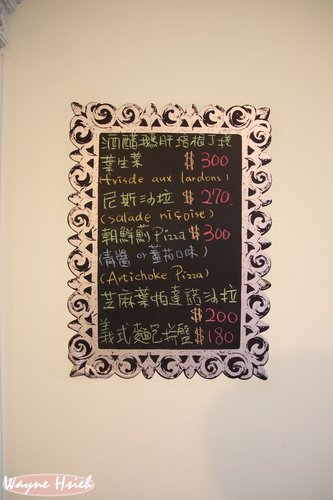 酒醋鵝肝培根丁捲
葉生菜 $300
(frisée aux lardons)
尼斯沙拉 $270
(salade niçoise)
朝鮮薊Pizza $300
(青醬 or 蕃茄口味)
(Artichoke Pizza)
芝麻葉帕達諾沙拉
$200
義式麵包拼盤 $180
Wayne Hsieh